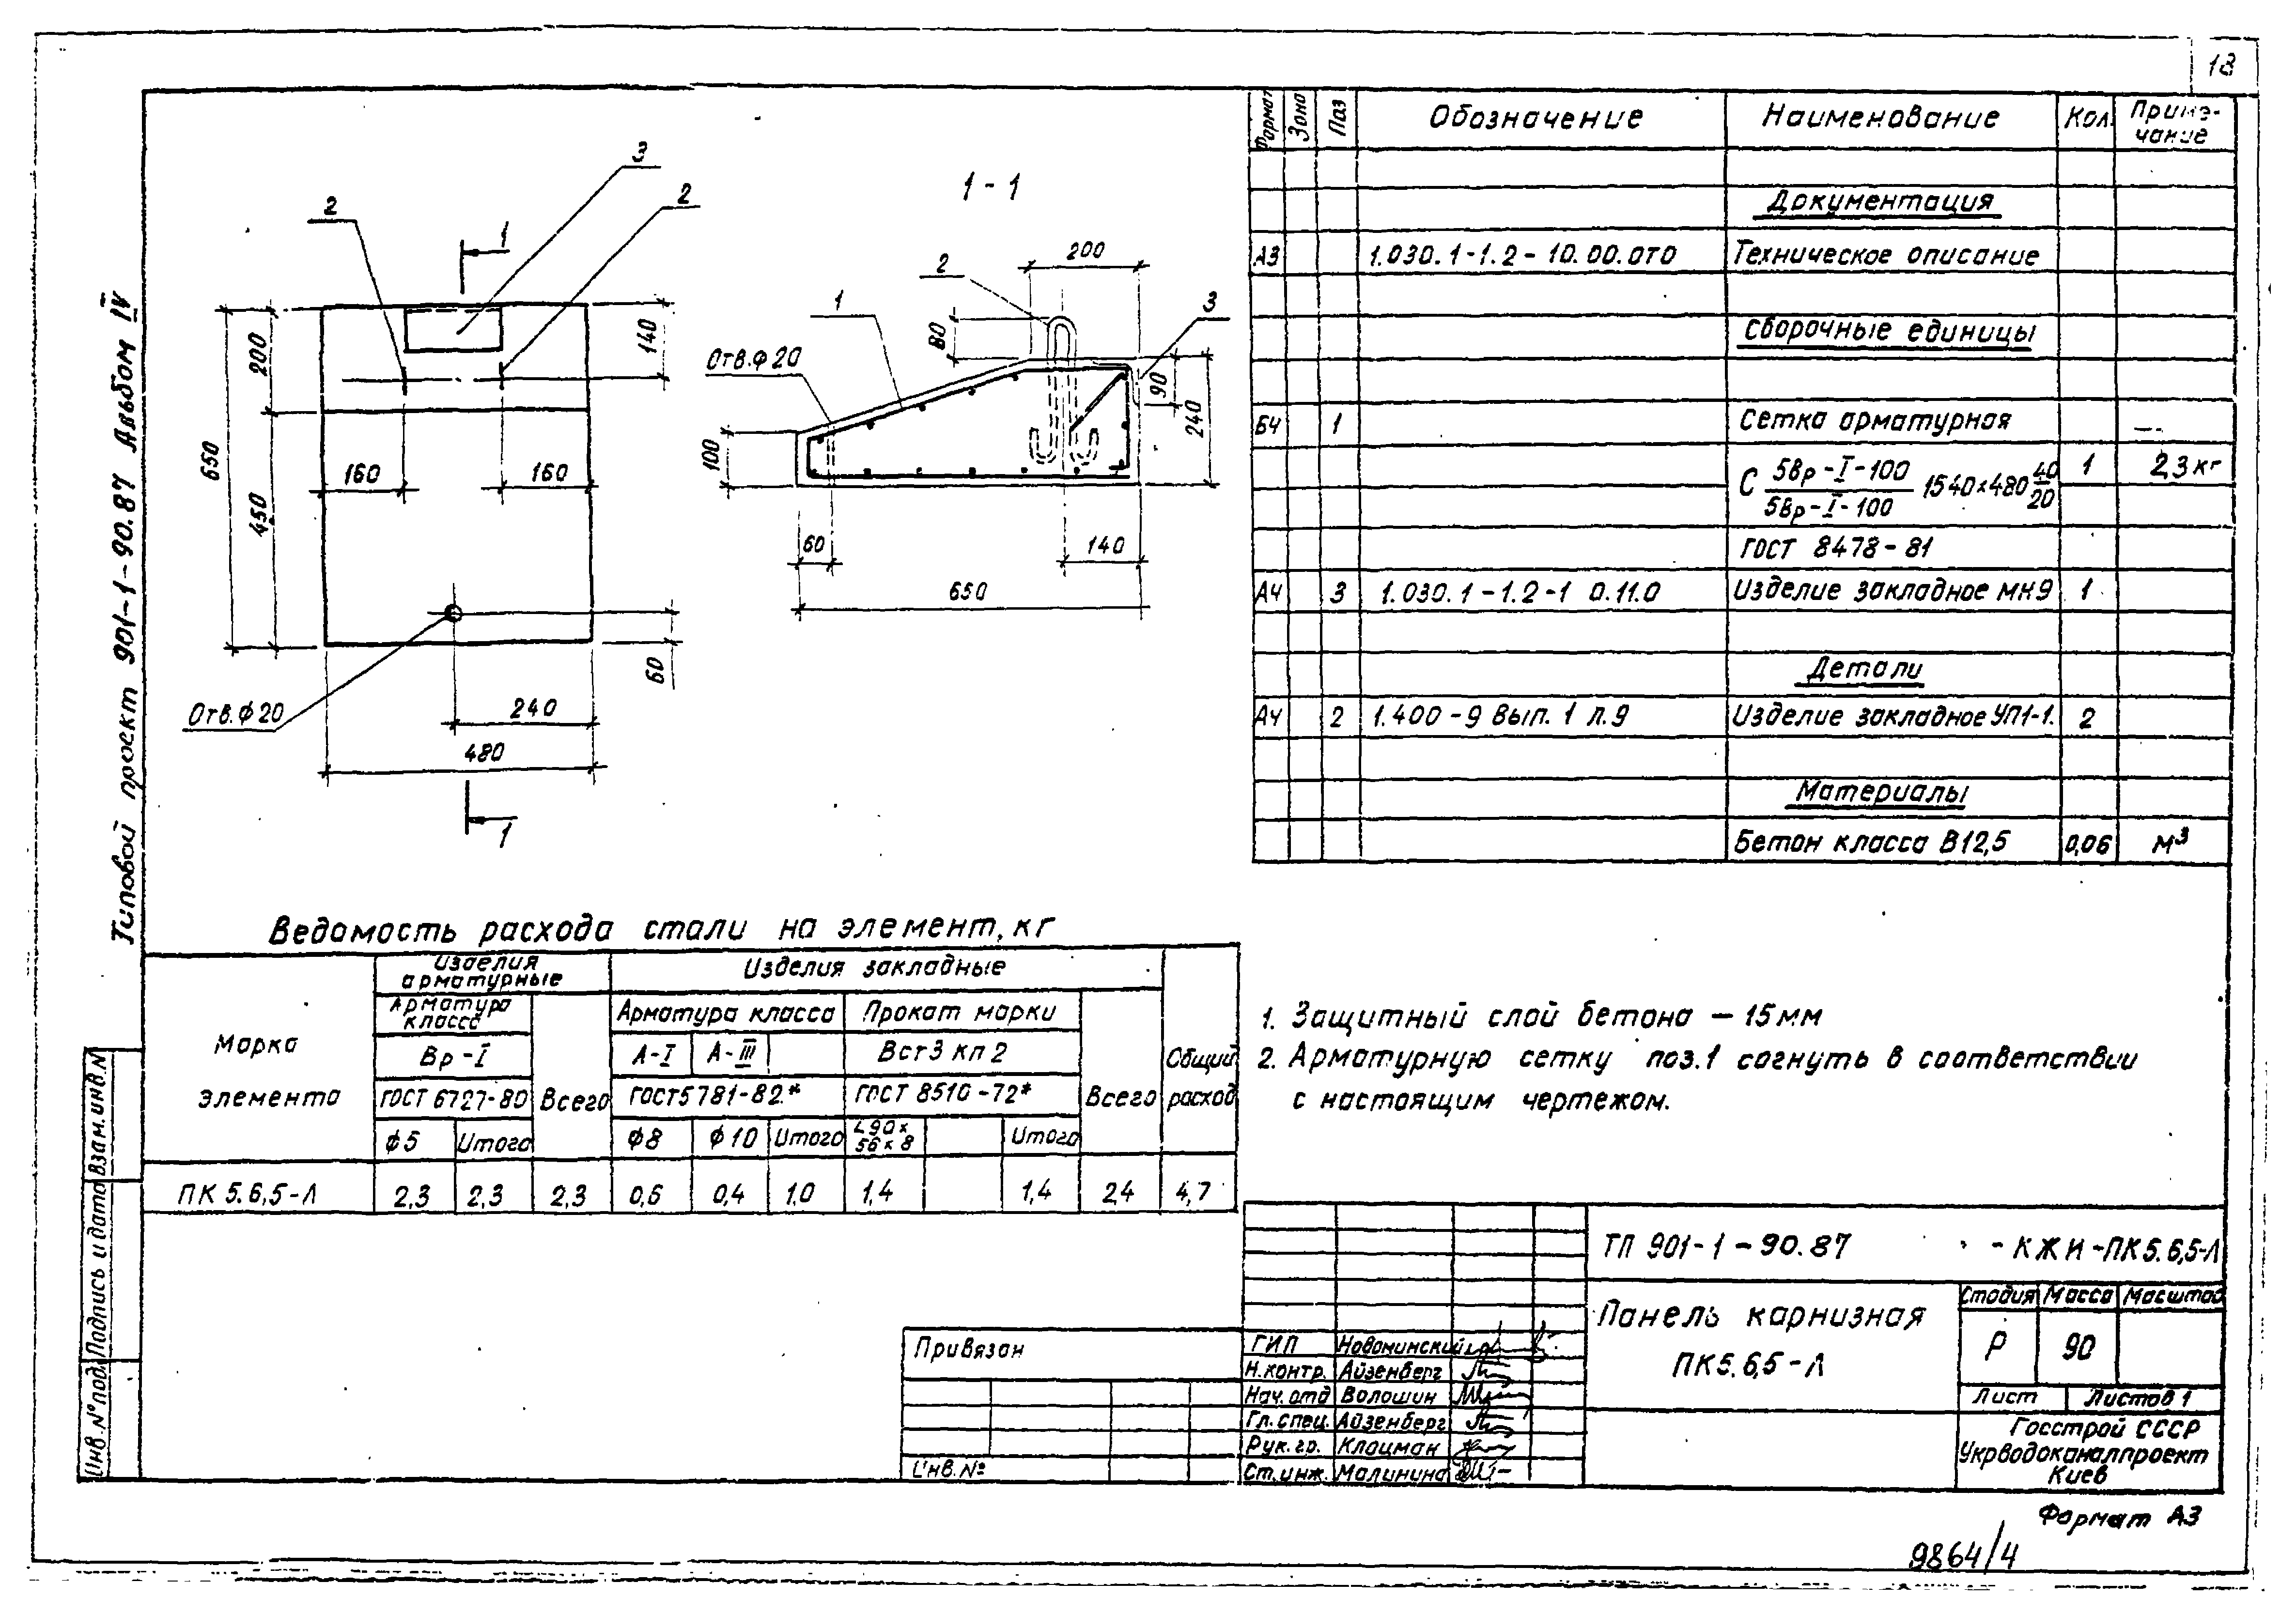 18
Типовой проект 901-1-90.87 Альбом IV
3
2
2
1
650
200
450
140
160
160
60
Отв.ф20
240
480
1
1-1
200
2
1
3
80
Отв.ф20
90
240
100
60
140
650
Формат Зона Поз Обозначение Наименование Кол. Приме-
чание
Документация
А3 1.030.1-1.2-10.00.0ТО Техническое описание
Сборочные единицы
БЧ 1 Сетка арматурная —
С 5Вр-I-100 / 5Вр-I-100 1540×480 40/20 1 2,3кг
ГОСТ 8478-81
А4 3 1.030.1-1.2-1 0.11.0 Изделие закладное МН9 1
Детали
А4 2 1.400-9 Вып. 1 л.9 Изделие закладное УП1-1. 2
Материалы
Бетон класса В12,5 0,06 м³
Ведомость расхода стали на элемент, кг
Марка
элемента
Изделия
арматурные
Изделия закладные
Общий
расход
Арматура
класса
Всего
Арматура класса
Прокат марки
Всего
Вр-I
А-I А-III
Вст3 кп2
ГОСТ 6727-80
ГОСТ 5781-82*
ГОСТ 8510-72*
ф5 Итого ф8 ф10 Итого
∟90×
56×8
Итого
ПК 5.6,5-Л 2,3 2,3 2,3 0,6 0,4 1,0 1,4 1,4 2,4 4,7
1. Защитный слой бетона – 15мм
2. Арматурную сетку поз.1 согнуть в соответствии
с настоящим чертежом.
Взам.инв.N
Подпись и дата
Инв.N°подл.
Привязан
Инв.№
ГИП Новоминский
Н.контр. Айзенберг
Нач.отд Волошин
Гл.спец. Айзенберг
Рук.гр. Клацман
Ст.инж. Малинина
ТП 901-1-90.87 -КЖИ-ПК5.6,5-Л
Панель карнизная
ПК5.6,5-Л
Стадия Масса Масштаб
Р 90
Лист Листов 1
Госстрой СССР
Укрводоканалпроект
Киев
Формат А3
9864/4